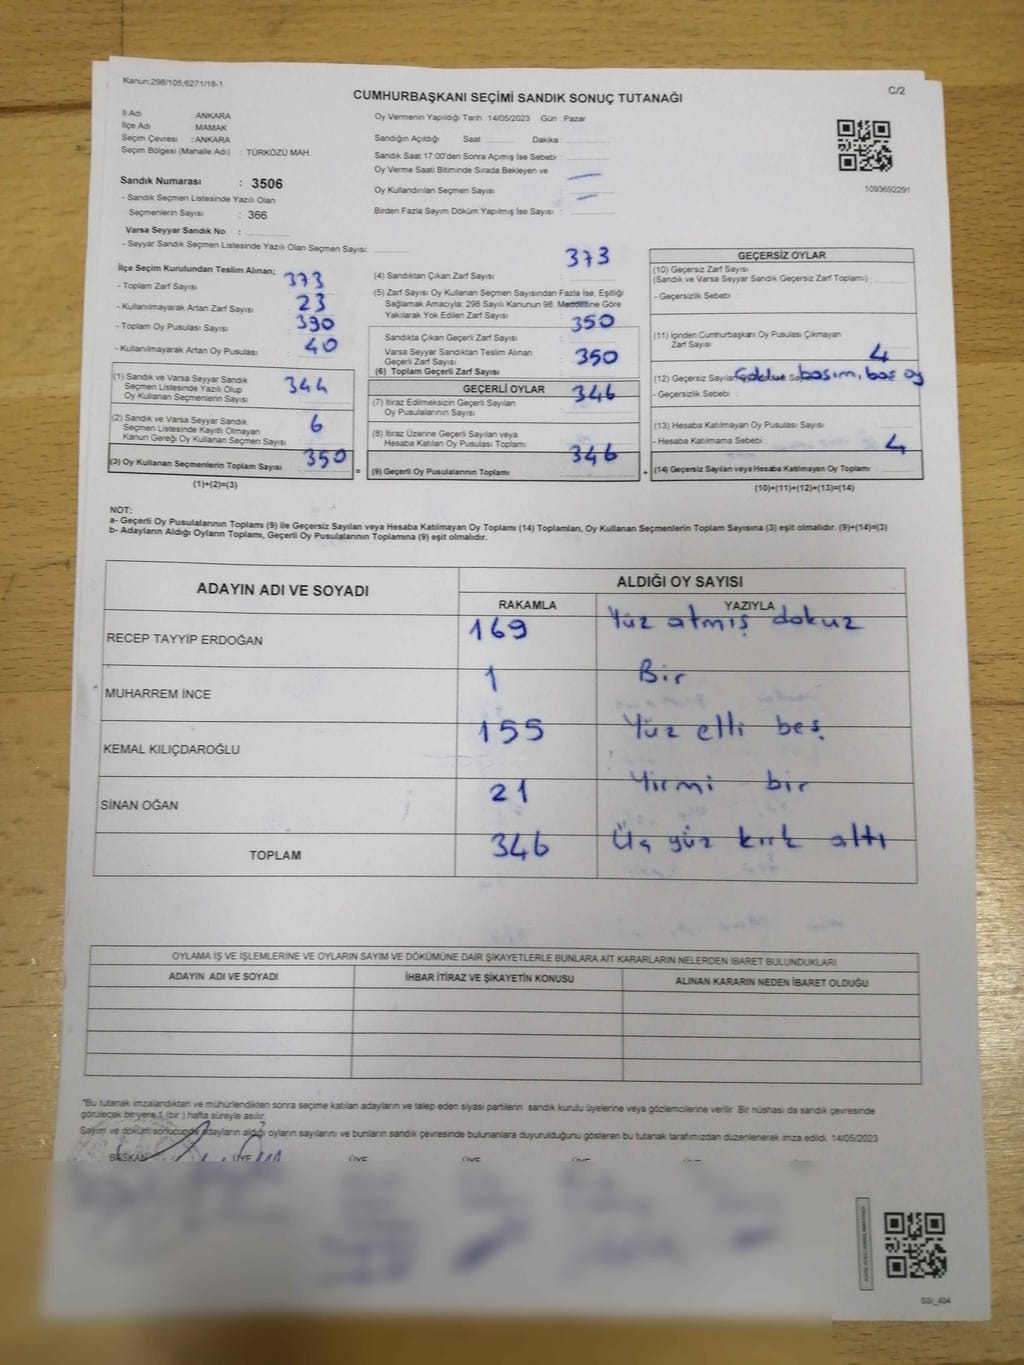 Kanun;298/105,6271/18-1
C/2
CUMHURBAŞKANI SEÇİMİ SANDIK SONUÇ TUTANAĞI
İl Adı ANKARA
İlçe Adı MAMAK
Seçim Çevresi : ANKARA
Seçim Bölgesi (Mahalle Adı) : TÜRKÖZÜ MAH.
Sandık Numarası : 3506
- Sandık Seçmen Listesinde Yazılı Olan
Seçmenlerin Sayısı : 366
Varsa Seyyar Sandık No :
- Seyyar Sandık Seçmen Listesinde Yazılı Olan Seçmen Sayısı:
Oy Vermenin Yapıldığı Tarih : 14/05/2023 Gün : Pazar
Sandığın Açıldığı Saat Dakika :
Sandık Saat 17:00'den Sonra Açımış İse Sebebi :
Oy Verme Saati Bitiminde Sırada Bekleyen ve
Oy Kullandırılan Seçmen Sayısı : —
Birden Fazla Sayım Döküm Yapılmış İse Sayısı : —
1093692291
İlçe Seçim Kurulundan Teslim Alınan;
- Toplam Zarf Sayısı : 373
- Kullanılmayarak Artan Zarf Sayısı : 23
- Toplam Oy Pusulası Sayısı : 390
- Kullanılmayarak Artan Oy Pusulası : 40
(1) Sandık ve Varsa Seyyar Sandık
Seçmen Listesinde Yazılı Olup
Oy Kullanan Seçmenlerin Sayısı : 344
(2) Sandık ve Varsa Seyyar Sandık
Seçmen Listesinde Kayıtlı Olmayan
Kanun Gereği Oy Kullanan Seçmen Sayısı : 6
(3) Oy Kullanan Seçmenlerin Toplam Sayısı : 350
(1)+(2)=(3)
(4) Sandıktan Çıkan Zarf Sayısı : 373
(5) Zarf Sayısı Oy Kullanan Seçmen Sayısından Fazla İse, Eşitliği
Sağlamak Amacıyla; 298 Sayılı Kanunun 98. Maddesine Göre
Yakılarak Yok Edilen Zarf Sayısı :
Sandıkta Çıkan Geçerli Zarf Sayısı : 350
Varsa Seyyar Sandıktan Teslim Alınan
Geçerli Zarf Sayısı :
(6) Toplam Geçerli Zarf Sayısı : 350
GEÇERLİ OYLAR
(7) İtiraz Edilmeksizin Geçerli Sayılan
Oy Pusulalarının Sayısı : 346
(8) İtiraz Üzerine Geçerli Sayılan veya
Hesaba Katılan Oy Pusulaları Toplamı :
= (9) Geçerli Oy Pusulalarının Toplamı : 346
GEÇERSİZ OYLAR
(10) Geçersiz Zarf Sayısı
(Sandık ve Varsa Seyyar Sandık Geçersiz Zarf Toplamı) :
- Geçersizlik Sebebi :
(11) İçinden Cumhurbaşkanı Oy Pusulası Çıkmayan
Zarf Sayısı :
(12) Geçersiz Sayılan 4
basım, boş oy
- Geçersizlik Sebebi :
(13) Hesaba Katılmayan Oy Pusulası Sayısı :
- Hesaba Katılmama Sebebi :
+ (14) Geçersiz Sayılan veya Hesaba Katılmayan Oy Toplamı 4
(10)+(11)+(12)+(13)=(14)
NOT:
a- Geçerli Oy Pusulalarının Toplamı (9) ile Geçersiz Sayılan veya Hesaba Katılmayan Oy Toplamı (14) Toplamları, Oy Kullanan Seçmenlerin Toplam Sayısına (3) eşit olmalıdır. (9)+(14)=(3)
b- Adayların Aldığı Oyların Toplamı, Geçerli Oy Pusulalarının Toplamına (9) eşit olmalıdır.
ADAYIN ADI VE SOYADI ALDIĞI OY SAYISI
RAKAMLA YAZIYLA
RECEP TAYYİP ERDOĞAN 169 Yüz atmış dokuz
MUHARREM İNCE 1 Bir
KEMAL KILIÇDAROĞLU 155 Yüz elli beş
SİNAN OĞAN 21 Yirmi bir
TOPLAM 346 Üç yüz kırk altı
OYLAMA İŞ VE İŞLEMLERİNE VE OYLARIN SAYIM VE DÖKÜMÜNE DAİR ŞİKAYETLERLE BUNLARA AİT KARARLARIN NELERDEN İBARET BULUNDUKLARI
ADAYIN ADI VE SOYADI İHBAR İTİRAZ VE ŞİKAYETİN KONUSU ALINAN KARARIN NEDEN İBARET OLDUĞU
*Bu tutanak imzalandıktan ve mühürlendikten sonra seçime katılan adayların ve talep eden siyasi partilerin sandık kurulu üyelerine veya gözlemcilerine verilir. Bir nüshası da sandık çevresinde
görülecek bir yere 1 (bir ) hafta süreyle asılır.
Sayım ve döküm sonucunda adayların aldığı oyların sayılarını ve bunların sandık çevresinde bulunanlara duyurulduğunu gösteren bu tutanak tarafımızdan düzenlenerek imza edildi. 14/05/2023
BAŞKAN ÜYE ÜYE ÜYE ÜYE